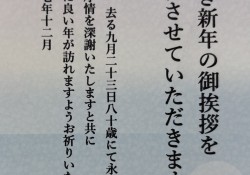 き新年の御挨拶を
させていただきま
去る九月二十三日八十歳にて永
情を深謝いたしますと共に
に良い年が訪れますようお祈りいた
年十二月